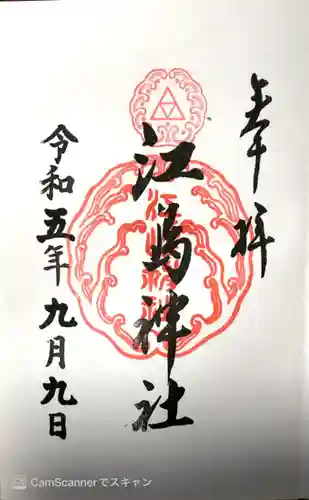 奉拝
江島神社
令和五年九月九日
CamScannerでスキャン